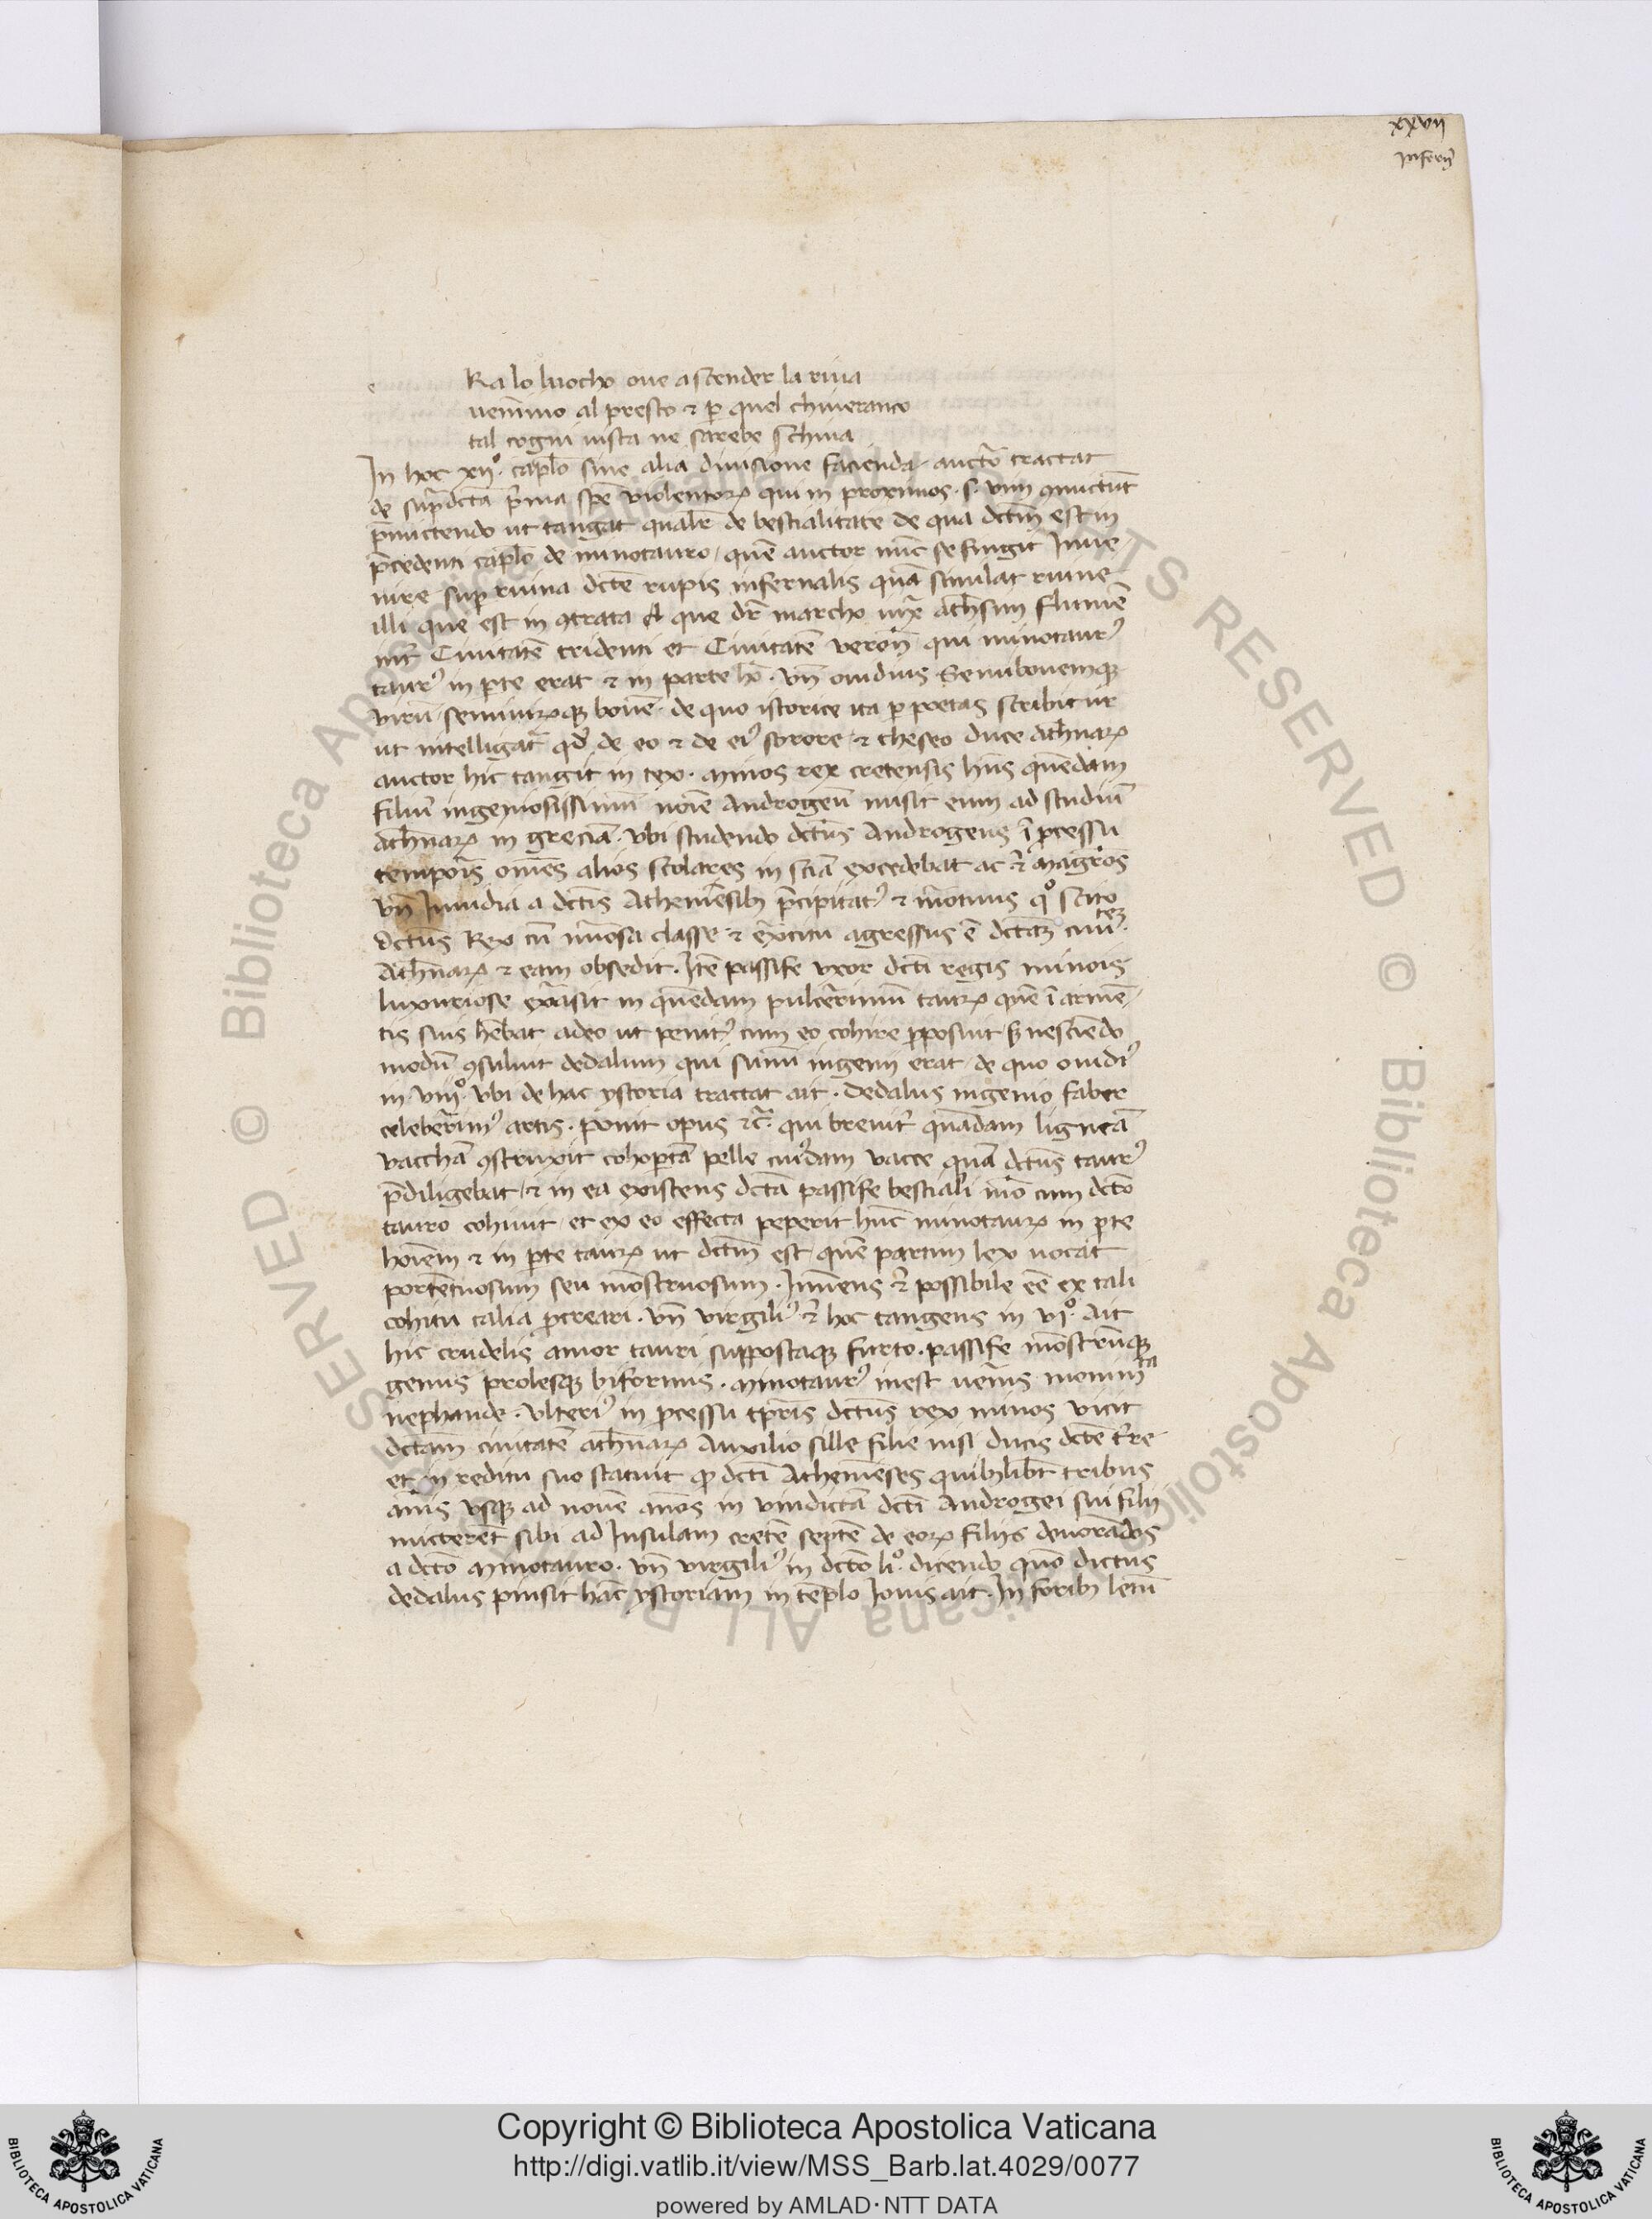 xxvii
Infern̄
e
Ra lo luocho oue ascender la riua
uenimo al presto ⁊ ꝑ quel chiueranco
tal cogni uista ne sarebe schiua
In hoc xii°. capl̄o sine alia diuisione facienda. auctor tractat
de supradcta prima spē uiolentoꝝ qui in proximos .s. uim ꝯmictunt
p̄mictendo ut tangat qualr̄ de bestialitate de qua dctm̄ est in
p̄cedenti capl̄o de minotauro, quē auctor nūc se fingit Inue
nire sup ruina dcte rupis infernalis quā simulat ruine
illi que est in ꝯtrata que dr̄ marcho iuxͣ athesim flumē
int̄ Ciuitatē tridenti et Ciuitatē ueron̄ qui minotaurꝰ
taurꝰ in ꝑte erat ⁊ in parte hō. Vn̄ ouidius Semibouemqꝫ
uirū semiuirꝫqꝫ bouē. de quo istorice ita ꝑ poetas scribitur
ut intelligatr̄ qd̄ de eo ⁊ de eiꝰ sorore ⁊ theseo duce Ath̄naꝝ
auctor hic tangit in tex. Minos rex cretensis hn̄s quēdam
filiū ingeniosissimū noīe Androgeū misit eum ad studiū
Ath̄naꝝ in greciā. Vbi studendo dctus Androgeus ī ꝓcessu
temporis om̄es alios scolares in sciā excedebat ac ⁊ magros
Vn̄ Inuidia a dctis Atheniēsibꝫ p̄cipitatꝰ ⁊ mortuus q° scito
dctus Rex cū nūosa classe ⁊ exercitu agressus ē dctaꝫ ciuiteꝫ
Ath̄naꝝ ⁊ eam obsedit. Itē passife vxor dcti regis minois
luxuriose exarsit in quēdam pulcerimū tauꝝ quē ī armē
tis suis hēbat adeo ut penitꝰ cum eo cohire ꝓposuit sꝫ nesciēdo
modū ꝯsuluit dedalum qui sumi ingenii erat de quo ouidiꝰ
in viii° Vbi de hac ystoria tractat ait. Dedalus ingenio faber
celeberimꝰ artis. ponit opus ⁊c̄. qui breuitr̄ quādam ligneā
vacchā ꝯstruxit cohoꝑtā pelle cuiꝰdam vacce quā dctus taurꝰ
p̄diligebat, ⁊ in ea existens dctā passife bestiali mō cum dcto
tauro cohiuit, et ex eo effecta peperit hūc minotauꝝ in ꝑte
hoiēm ⁊ in ꝑte tauꝝ ut dctm̄ est, quē partum lex uocat
portētuosum seu mōstruosum. Inuens ⁊ possibile eē ex tali
cohitu talia ꝓcreari. Vn̄ virgiliꝰ ⁊ hoc tangens in vi°. Ait
hic crudelis amor tauri suppostaqꝫ furto. passife mōstrūqꝫ
genus prolesqꝫ biformis. Minotaurꝰ inest uēris monimͭᵃ
nephande. Vlteriꝰ in ꝓcessu tꝑris dctus rex minos vicit
dctam ciuitatē ath̄naꝝ Auxilio sille filie nisi ducis dcte t̄re
et in reditu suo statuit ꝙ dcti Atheniēses quibuslibꝫ tribus
anis vsqꝫ ad nouē anos in vindictā dcti Androgei sui filii
micterēt sibi ad Insulam cretē septē de eoꝝ filijs deuorādos
a dcto Minotauro. Vn̄ virgiliꝰ in dcto li°. dicendo quō dictus
dedalus pinsit hāc ystoriam in tēplo Iouis ait. In foribꝫ letū
Copyright © Biblioteca Apostolica Vaticana
http://digi.vatlib.it/view/MSS_Barb.lat.4029/0077
powered by AMLAD·NTT DATA
BIBLIOTECA APOSTOLICA VATICANA
BIBLIOTECA APOSTOLICA VATICANA
© Biblioteca Apostolica Vaticana ALL RIGHTS RESERVED © Biblioteca Apostolica Vaticana ALL RIGHTS RESERVED